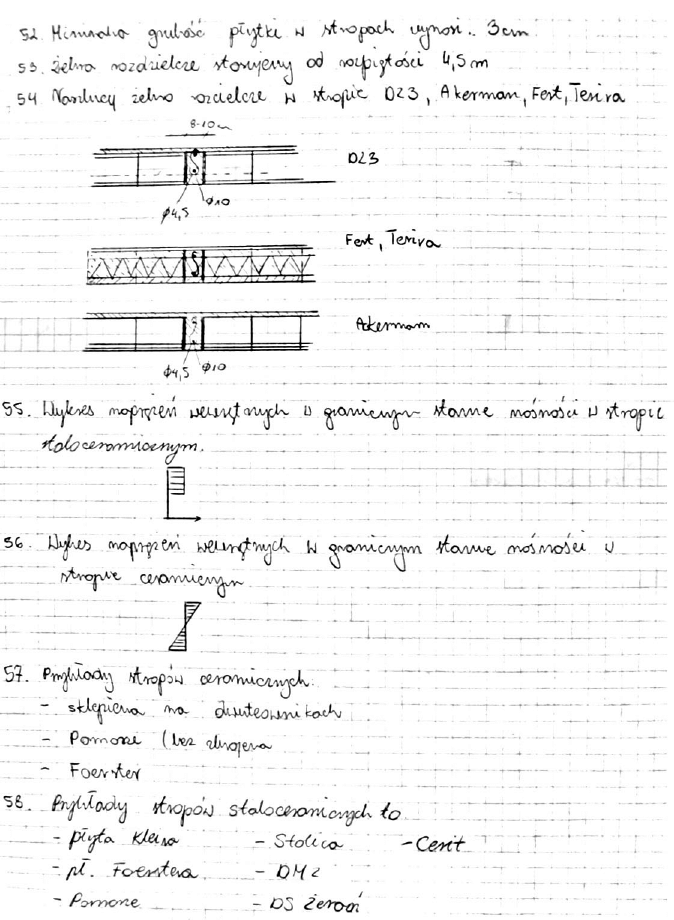 52. Minimalna grubość płytki w stropach wynosi.. 3cm
53. Żebra rozdzielcze stosujemy od rozpiętości 4,5m
54 Narysuj żebro rozdzielcze w stropie DZ3, Akerman, Fert, Teriva
8-10cm
DZ3
φ4,5 φ10
Fert, Teriva
Ackermam
φ4,5 φ10
55. Wykres naprężeń wewnętrznych w granicznym stanie nośności w stropie
staloceramicznym.
56. Wykres naprężeń wewnętrznych w granicznym stanie nośności w
stropie ceramicznym
57. Przykłady stropów ceramicznych:
- sklepienia na dwuteownikach
- Pomorze (bez zbrojenia
- Foerster
58. Przykłady stropów staloceramicznych to
- płyta Kleina - Stolica - Cerit
- pł. Foerstera - DMZ
- Pomorze - DS Żerań